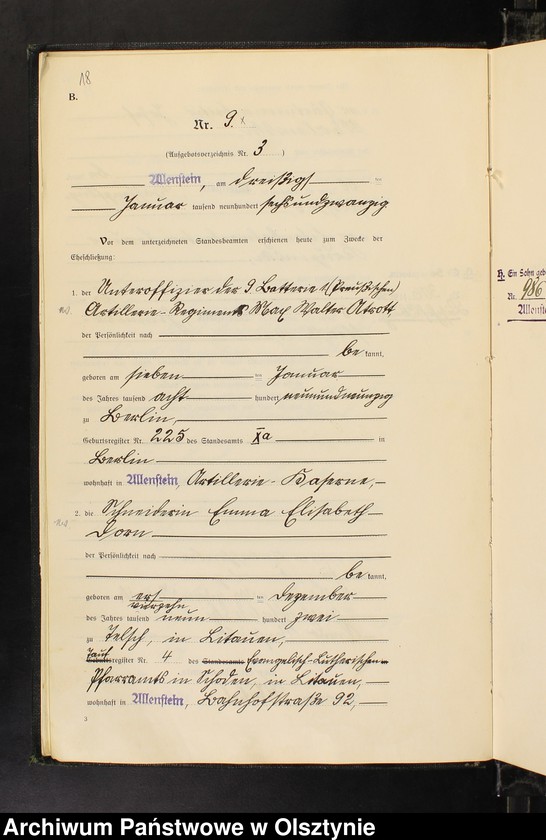 18
B.
Nr. 9.
(Aufgebotsverzeichnis Nr. 3)
Allenstein, am dreißigsten
Januar tausend neunhundert sechsundzwanzig
Vor dem unterzeichneten Standesbeamten erschienen heute zum Zwecke der
Eheschließung:
1. der Unteroffizier der 9. Batterie 1. (Preußischen)
Artillerie-Regiments Max Walter Atrott
der Persönlichkeit nach
be kannt,
geboren am sieben ten Januar
des Jahres tausend acht hundert neunundneunzig
zu Berlin,
Geburtsregister Nr. 225 des Standesamts Xa in
Berlin
wohnhaft in Allenstein, Artillerie-Kaserne,
2. die Schneiderin Emma Elisabeth
Dorn
der Persönlichkeit nach
be kannt,
geboren am ten Dezember
vierzehn
des Jahres tausend neun hundert zwei
zu Telsch, in Litauen,
Taufregister Nr. 4 des Standesamts Evangelisch-Lutherischen
Pfarramts in Schoden, in Litauen,
wohnhaft in Allenstein, Bahnhofstraße 92,
3
H. Ein Sohn geb
Nr. 986
Allenstein
Archiwum Państwowe w Olsztynie